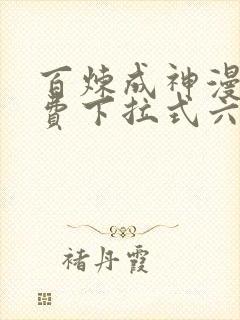 百炼成神漫
费下拉式六
褚丹霞